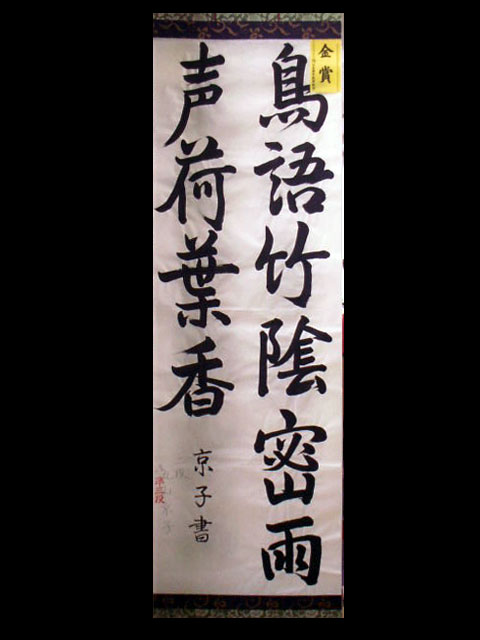 金賞
鳥語竹陰密雨
声荷葉香
京子書
準三段